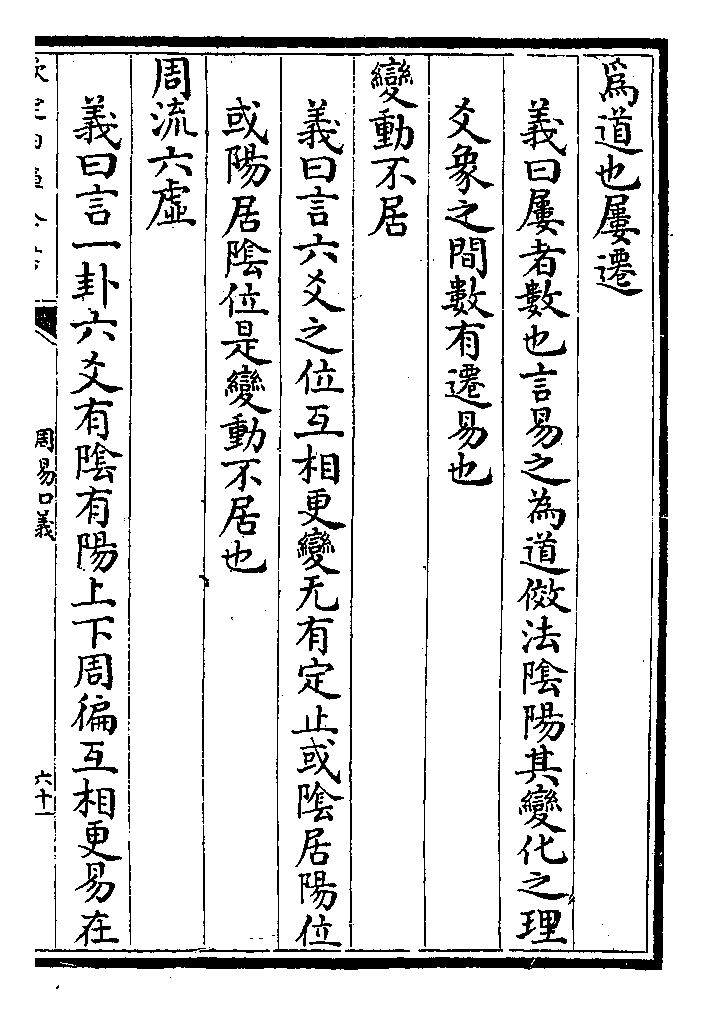 爲道也屢遷
義曰屢者數也言易之為道倣法陰陽其變化之理
爻象之間數有遷易也
變動不居
義曰言六爻之位互相更變无有定止或陰居陽位
或陽居陰位是變動不居也
周流六虛
義曰言一卦六爻有陰有陽上下周徧互相更易在
周易口義
六十一